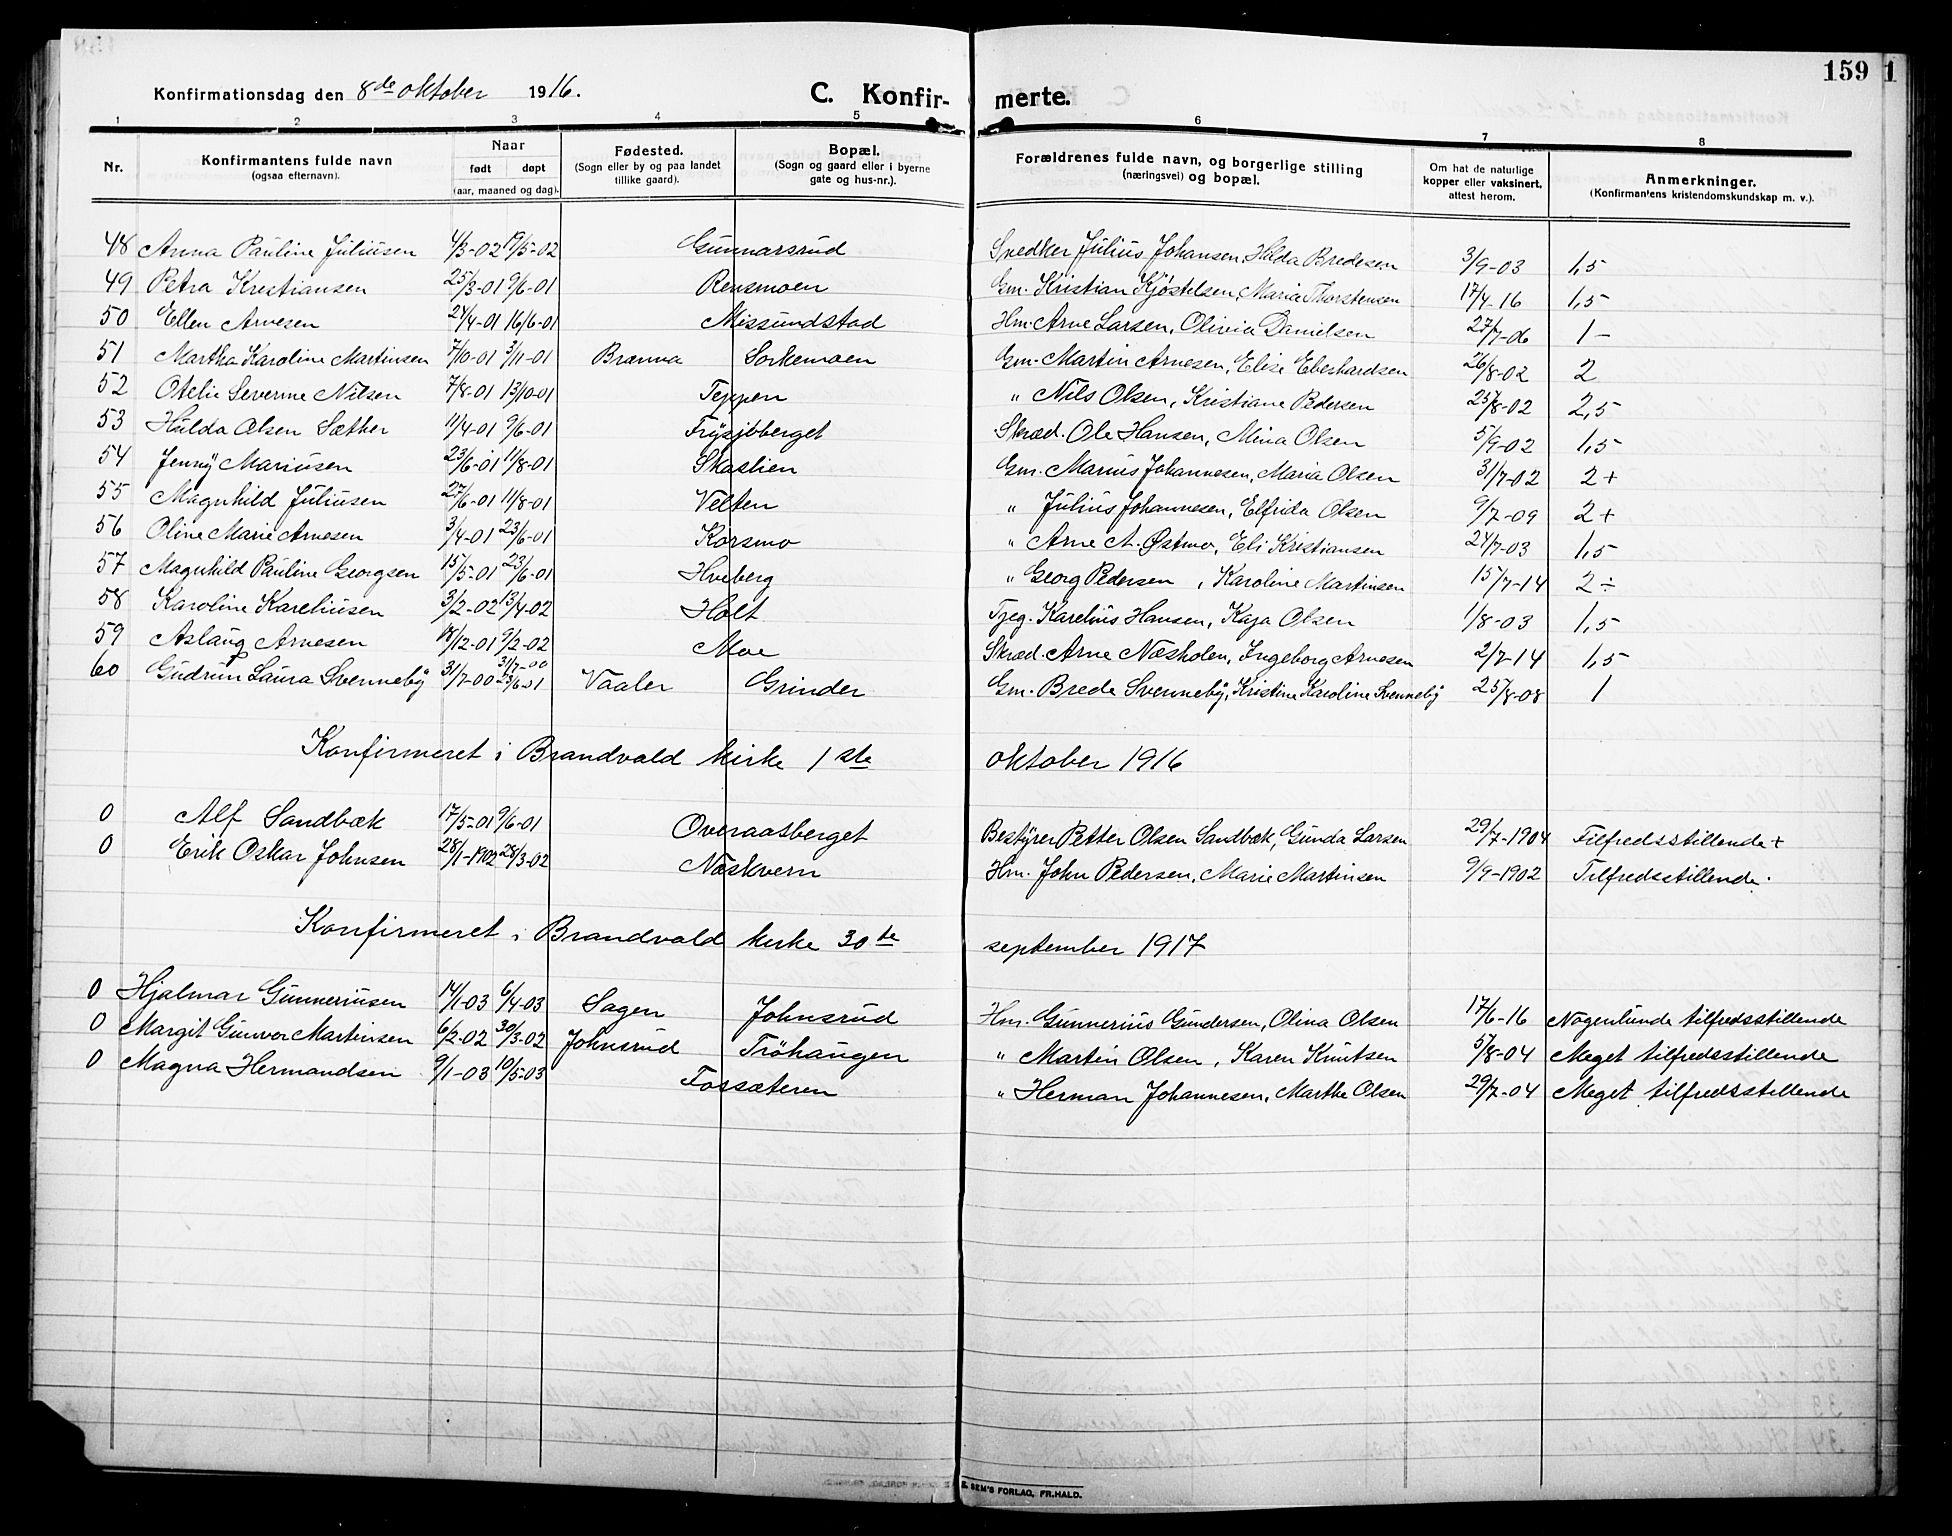 159 1
Konfirmationsdag den 8de oktober 1916. C. Konfir- merte.
1 2 3 4 5 6 7 8
Nr. Konfirmantens fulde navn (ogsaa efternavn). Naar født døpt (aar, maaned og dag). Fødested. (Sogn eller by og paa landet tillike gaard). Bopæl. (Sogn og gaard eller i byerne gate og hus-nr.). Forældrenes fulde navn, og borgerlige stilling (næringsvei) og bopæl. Om hat de naturlige kopper eller vaksinert, attest herom. Anmerkninger. (Konfirmantens kristendomskundskap m. v.).
48 Anna Pauline Juliusen 4/3-02 19/5-02 Gunnarsrud Snedker Julius Johansen, Hilda Bredesen 3/9-03 1,5
49 Petra Kristiansen 25/3-01 9/6-01 Rensmoen Gm. Kristian Kjøstelsen, Maria Thorstensen 17/4-16 1,5
50 Ellen Arnesen 24/4-01 16/6-01 Missundstad Hm. Arne Larsen, Olivia Danielsen 27/7-06 1-
51 Martha Karoline Martinsen 7/10-01 3/11-01 Branna Sorkemoen Gm. Martin Arnesen, Elise Eberhardsen 26/8-02 2
52 Otelie Severine Nilsen 7/8-01 13/10-01 Teppen " Nils Olsen, Kristiane Pedersen 25/8-02 2,5
53 Hulda Olsen Sæther 11/4-01 9/6-01 Frysjøberget Skræd. Ole Hansen, Mina Olsen 5/9-02 1,5
54 Jenny Mariusen 23/6-01 11/8-01 Skaslien Gm. Marius Johannesen, Maria Olsen 31/7-02 2+
55 Magnhild Juliusen 27/6-01 11/8-01 Velten " Julius Johannesen, Elfrida Olsen 9/7-09 2+
56 Oline Marie Arnesen 3/4-01 23/6-01 Korsmo " Arne A. Østmo, Eli Kristiansen 24/7-03 1,5
57 Magnhild Pauline Georgsen 15/5-01 23/6-01 Hveberg " Georg Pedersen, Karoline Martinsen 15/7-14 2÷
58 Karoline Kareliusen 3/2-02 13/4-02 Holt Tjeg. Karelius Hansen, Kaja Olsen 1/8-03 1,5
59 Aslaug Arnesen 18/12-01 9/2-02 Moe Skræd. Arne Næsholen, Ingeborg Arnesen 2/7-14 1,5
60 Gudrun Laura Svenneby 31/7-00 31/7-00 23/6 01 Vaaler Grinder Gm. Brede Svenneby, Kristine Karoline Svenneby 25/8-08 1
Konfirmeret i Brandvald kirke 1ste oktober 1916
0 Alf Sandbæk 17/5-01 9/6-01 Overaasberget Bestyrer Petter Olsen Sandbæk, Gunda Larsen 29/7-1904 Tilfredsstillende+
0 Erik Oskar Johnsen 28/1-1902 28/3-02 Næskvern Hm. John Pedersen, Marie Martinsen 9/9-1902 Tilfredsstillende.
Konfirmeret i Brandvald kirke 30te september 1917
0 Hjalmar Gunneriusen 14/1-03 6/4-03 Sagen Johnsrud Hm. Gunnerius Gundersen, Olina Olsen 17/6-16 Nogenlunde tilfredsstillende
0 Margit Gunvor Martinsen 6/2-02 30/3-02 Johnsrud Trøhaugen " Martin Olsen, Karen Knutsen 5/8-04 Meget tilfredsstillende
0 Magna Hermandsen 9/1-03 10/5-03 Fossæteren " Herman Johannesen, Marthe Olsen 29/7-04 Meget tilfredsstillende
SEM'S FORLAG, FR.HALD.